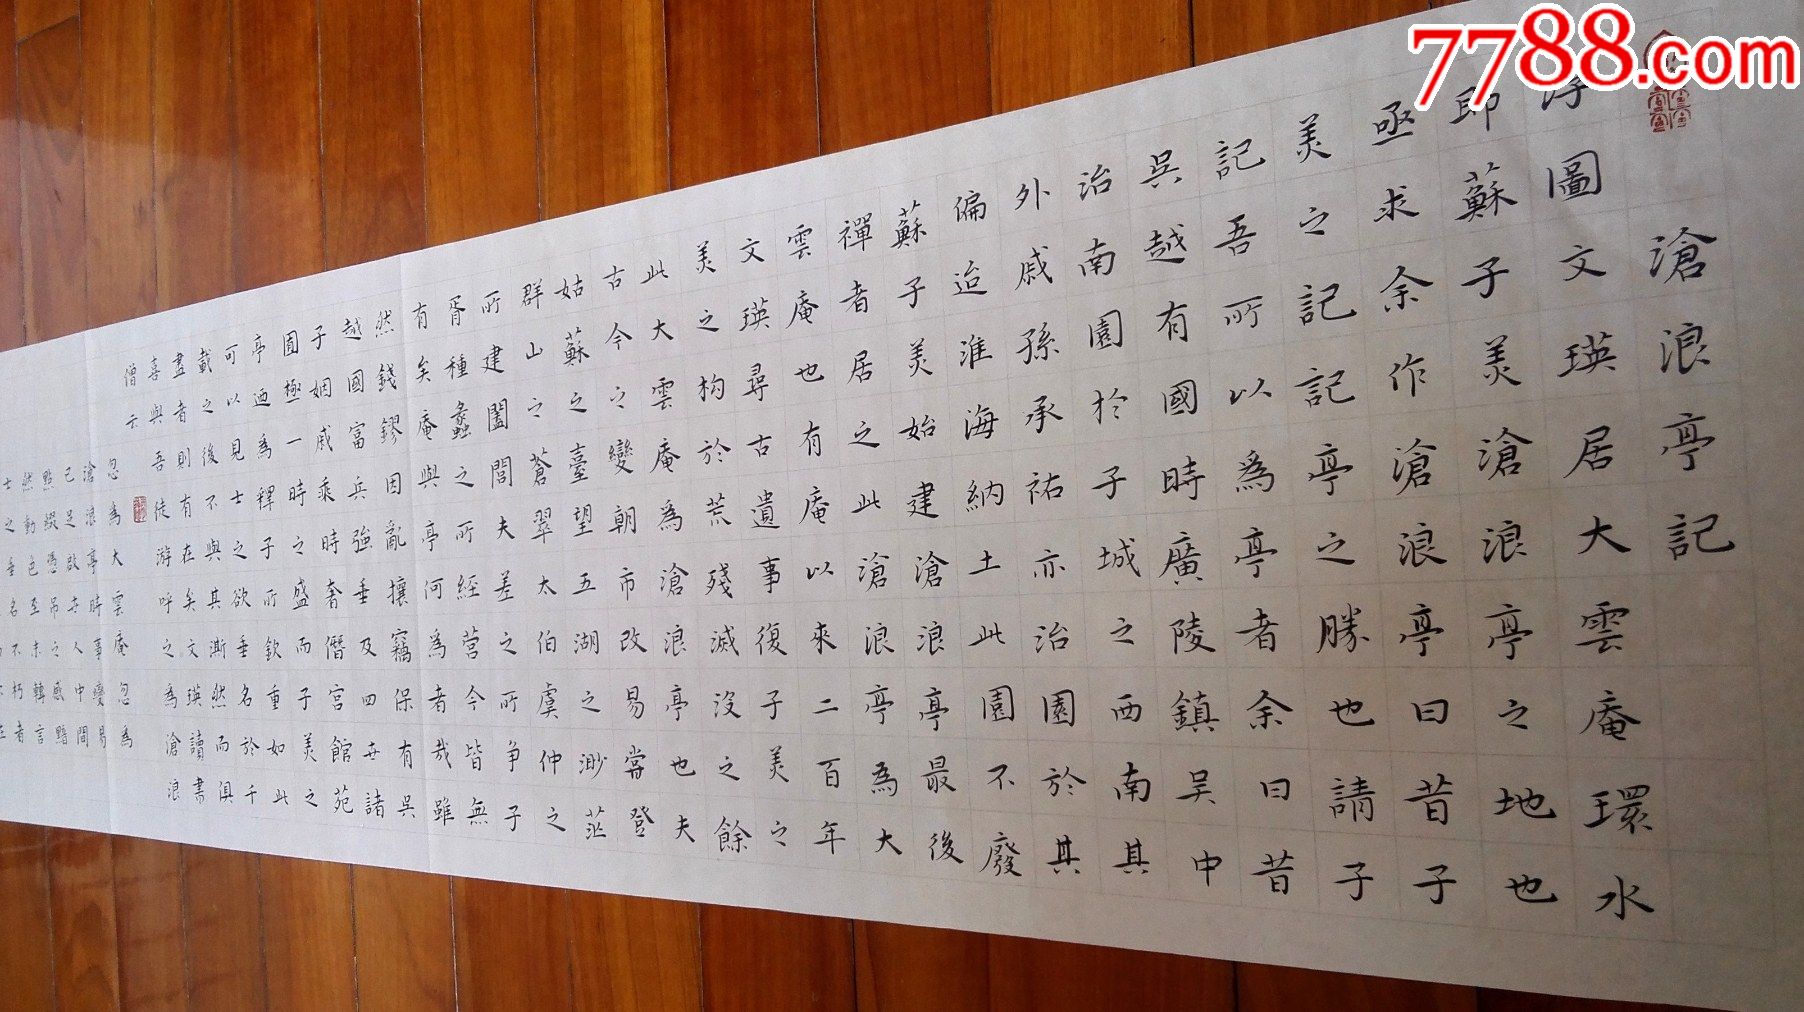 7788.com
滄浪亭記
浮圖文瑛居大雲庵環水
即蘇子美滄浪亭之地也
亟求余作滄浪亭曰昔子
美之記記亭之勝也請子
記吾所以為亭者余曰昔
吳越有國時廣陵鎮吳中
治南園於子城之西南其
外戚孫承祐亦治園於其
偏迨淮海納土此園不廢
蘇子美始建滄浪亭最後
禪者居之此滄浪亭為大
雲庵也有庵以來二百年
文瑛尋古遺事復子美之
美之构於荒殘滅沒之餘
此大雲庵為滄浪亭也夫
古今之變朝市改易嘗登
姑蘇之臺望五湖之渺茫
群山之蒼翠太伯虞仲之
所建闔閭夫差之所争子
胥種蠡之所經營今皆無
有矣庵與亭何為者哉雖
然錢鏐因亂攘竊保有吳
越國富兵強垂及四世諸
子姻戚乘時奢僭宮館苑
囿極一時之盛而子美之
亭迺為釋子所欽重如此
可以見士之欲垂名於千
載之後不與其澌然而俱
盡者則有在矣文瑛讀書
喜與吾徒游呼之為滄浪
僧云
忽為大雲庵忽為
滄浪亭時事變易
己足啟世人中間
點綴憑吊之感黯
然動色至末轉言
士之垂名不朽者